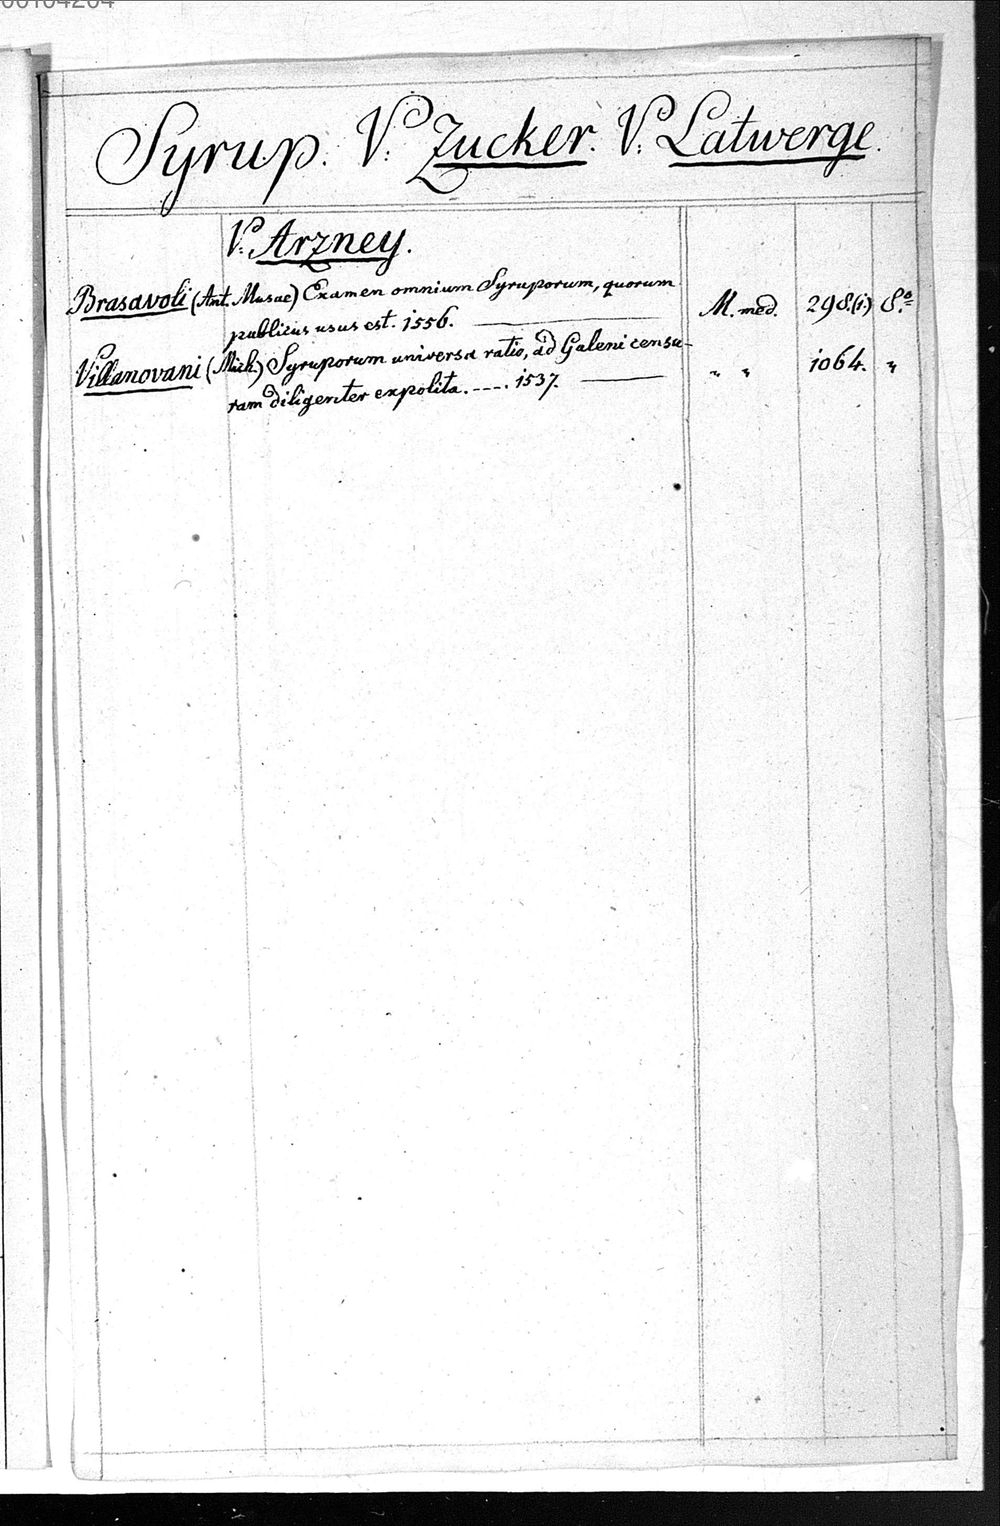 Syrup. V: Zucker. V: Latwerge.
V: Arzney.
Brasavoli (Ant. Musae) Examen omnium Syruporum, quorum
publicus usus est. 1556. M. med. 298.(1.) 8.º
Villanovani (Mich.) Syruporum universa ratio, ad Galeni censu-
ram diligenter expolita. ---- 1537. " " 1064. "